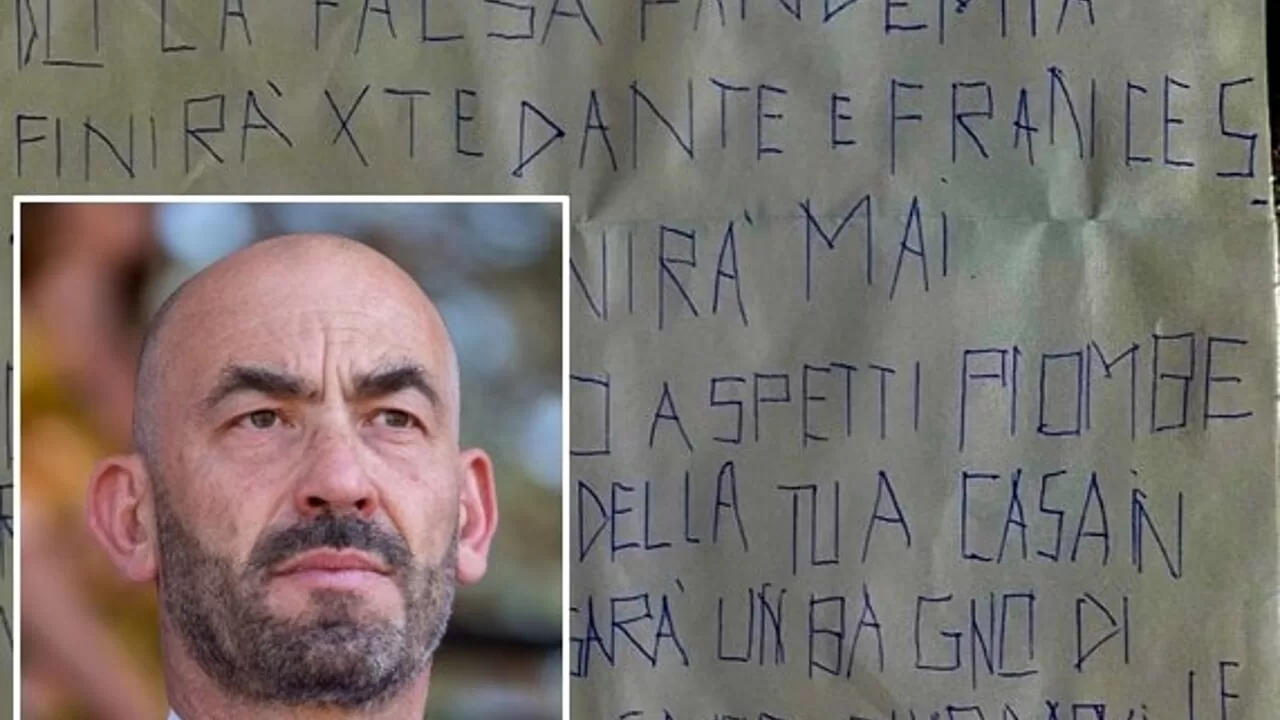 LA FALSA PANDEMIA
FINIRÀ X TE DANTE E FRANCES-
NIRÀ MAI
ASPETTI PIOMBE
DELLA TUA CASA IN
SARÀ UN BAGNO DI
LE